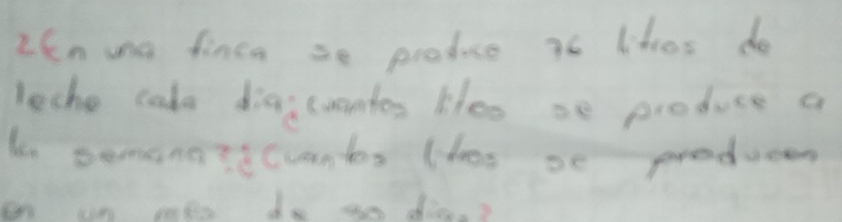 2 En una finca se produce 76 litros de
leche cada dia ¿cuantos litros se produce a
la semana? ¿Cuantos litros se producen
en un mes de 30 dias?